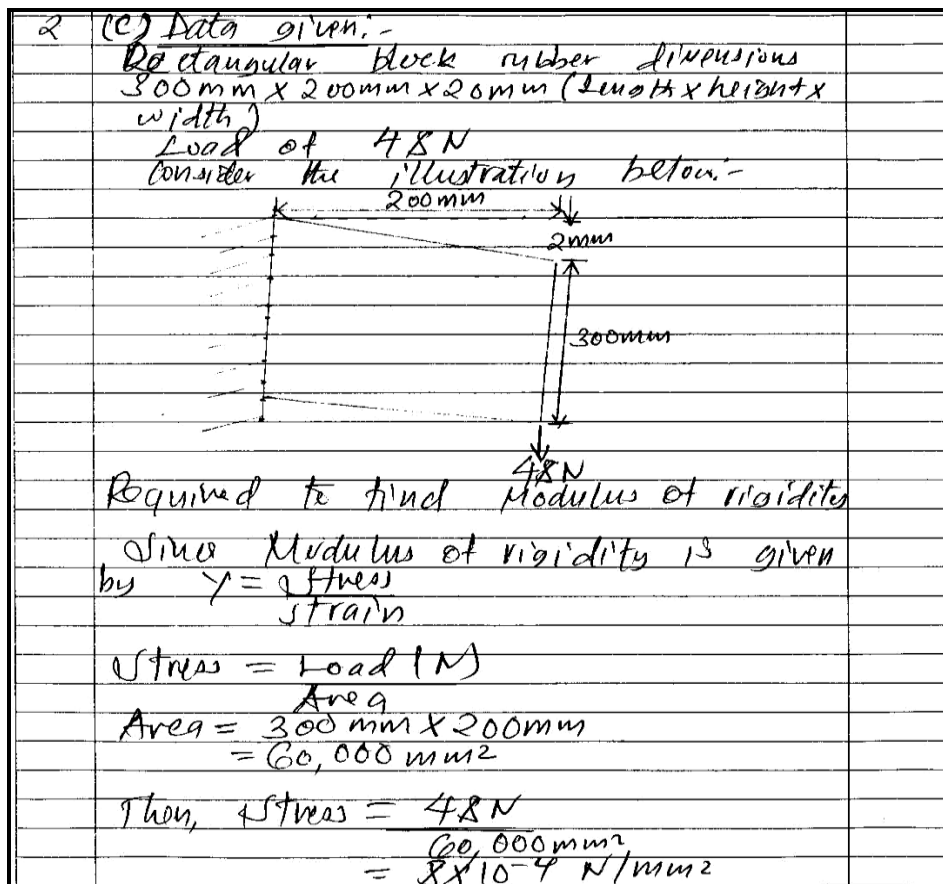 2 (C) Data given:-
Rectangular block rubber dimensions
300mm x 200mm x 20mm (length x height x
width)
Load of 48N
Consider the illustration below:-
200mm
2mm
300mm
48N
Required to find Modulus of rigidity
Since Modulus of rigidity is given
by Y = Stress
strain
Stress = Load (N)
Area
Area = 300 mm x 200mm
= 60,000 mm2
Then, Stress = 48N
60,000mm2
= 8x10-4 N/mm2